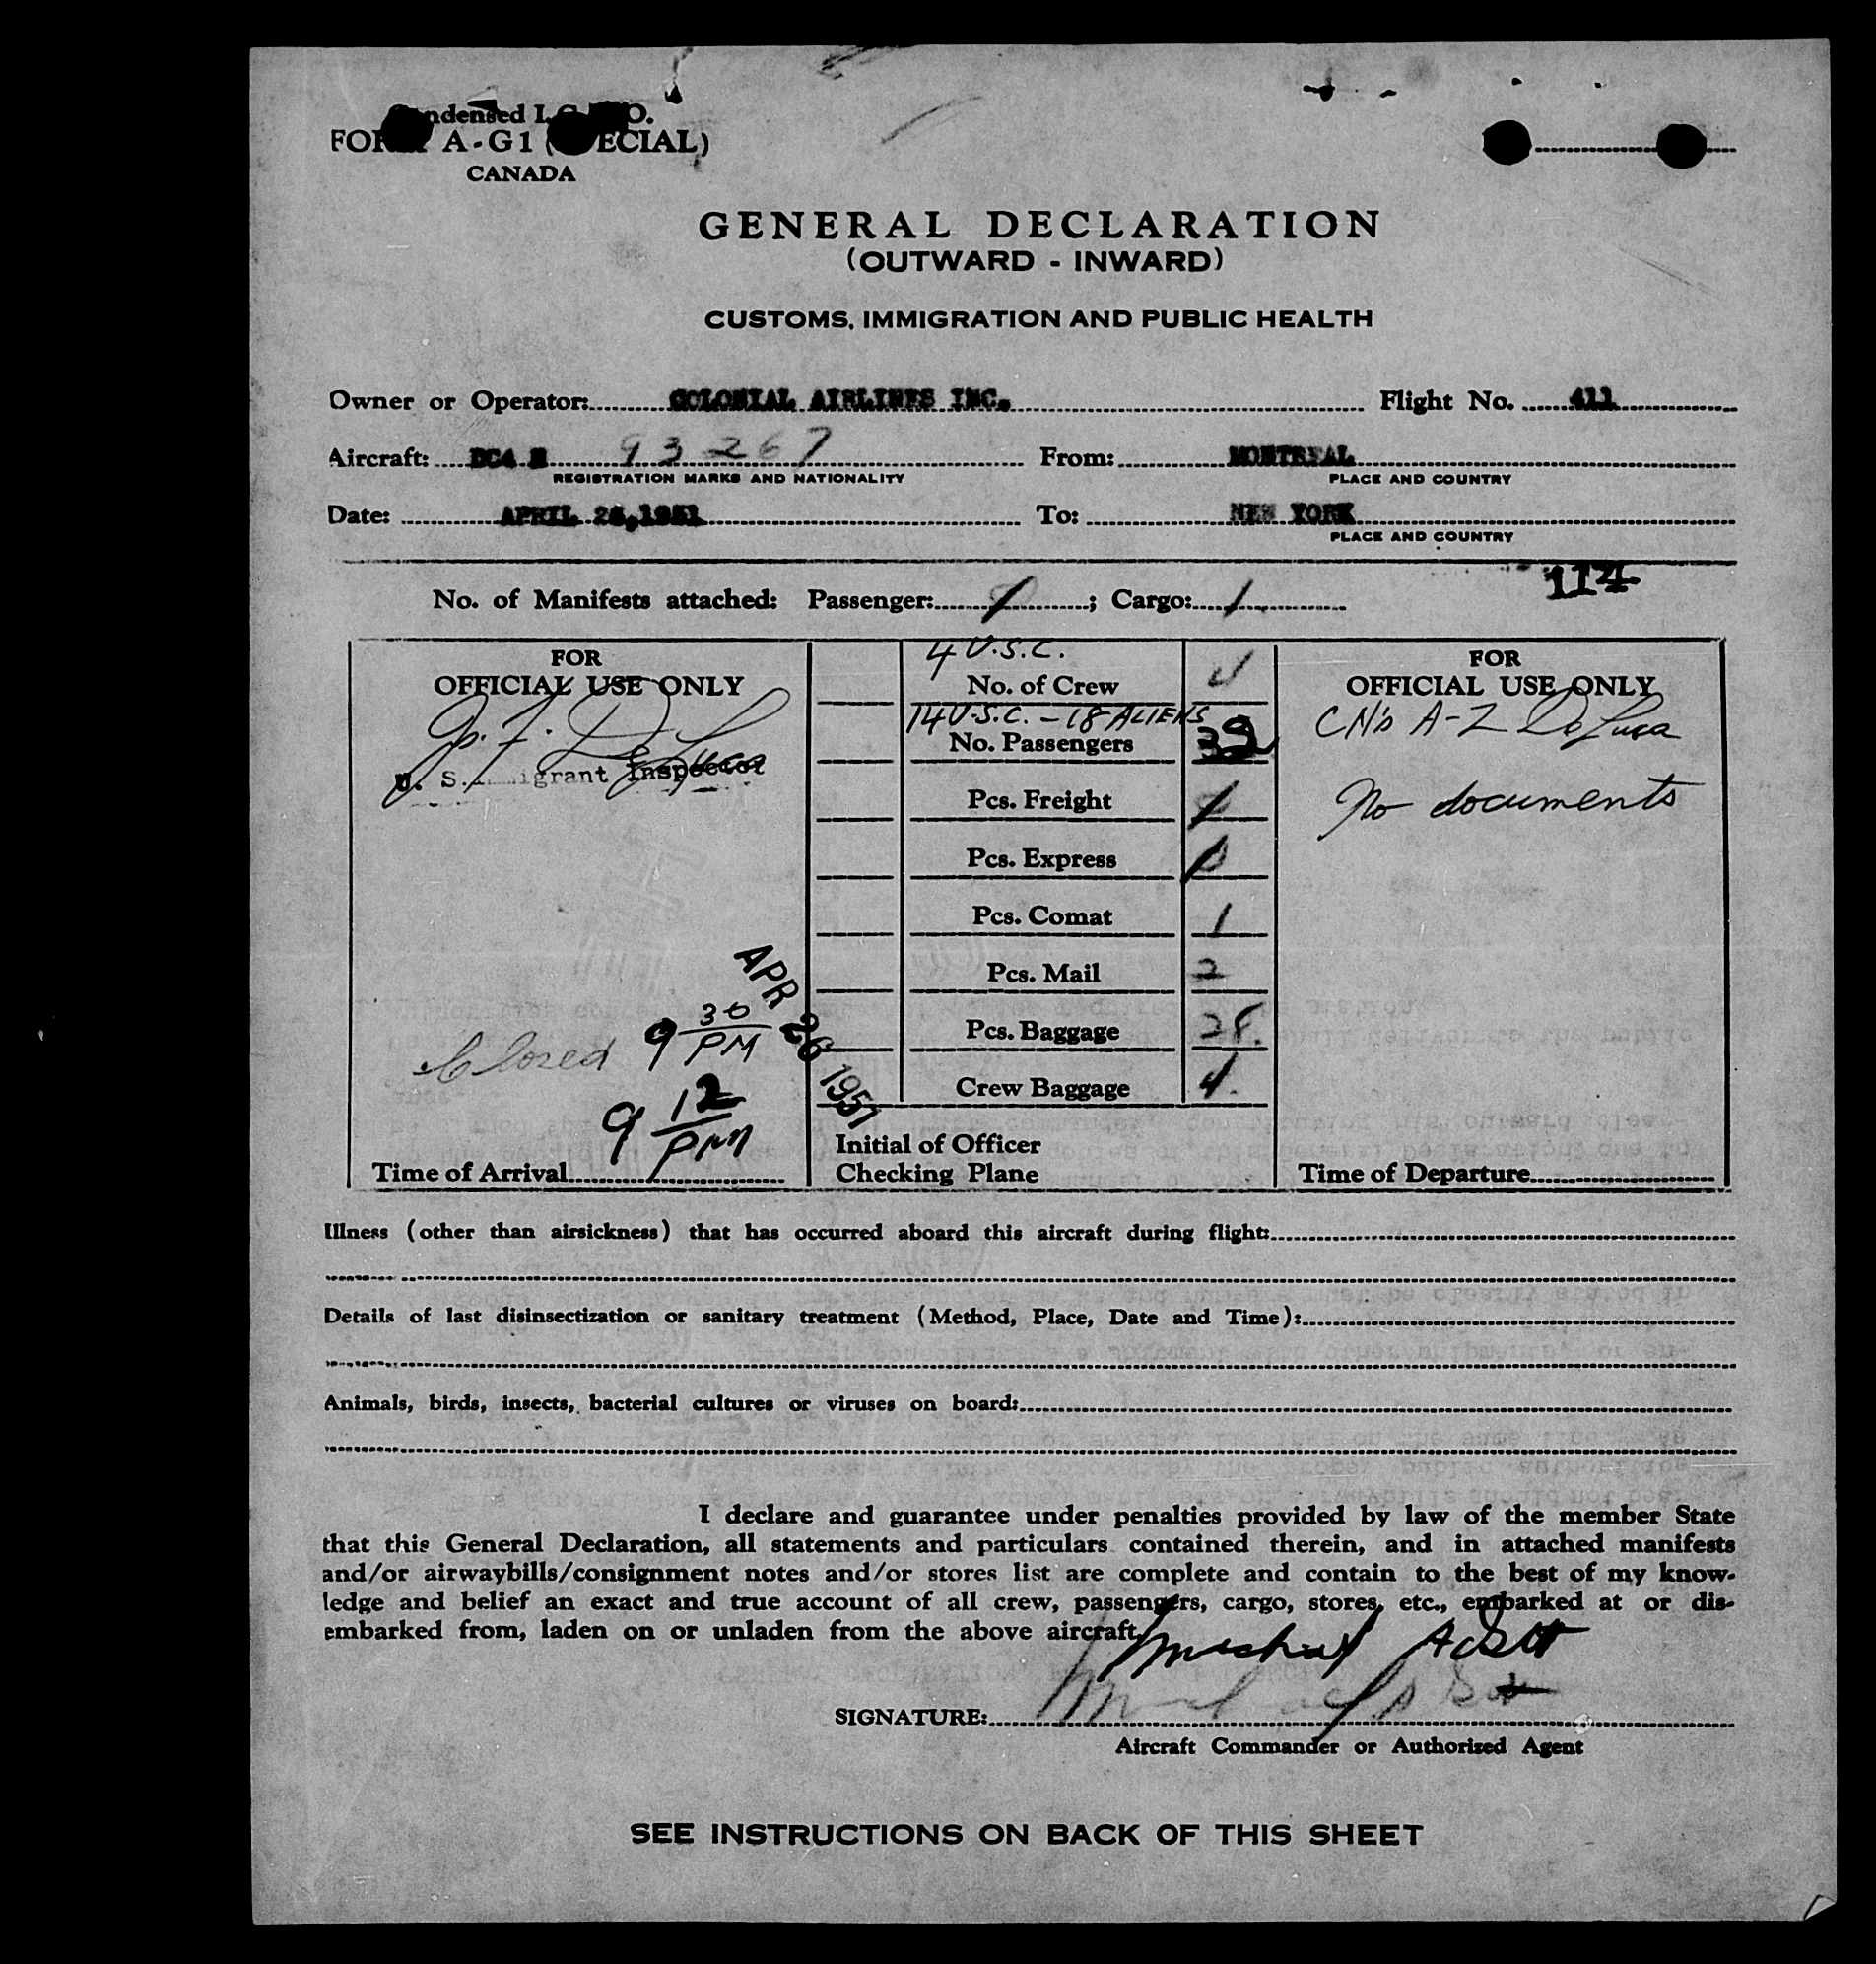 Condensed I.C.A.O.
FORM A-G1 (SPECIAL)
CANADA
GENERAL DECLARATION
(OUTWARD - INWARD)
CUSTOMS, IMMIGRATION AND PUBLIC HEALTH
Owner or Operator: COLONIAL AIRLINES INC. Flight No. 411
Aircraft: DC4 N 93267 From: MONTREAL
REGISTRATION MARKS AND NATIONALITY PLACE AND COUNTRY
Date: APRIL 26,1951 To: NEW YORK
PLACE AND COUNTRY
114
No. of Manifests attached: Passenger: 1; Cargo: 1
FOR
OFFICIAL USE ONLY
J. F. DeLuca
U. S. Immigrant Inspector
Closed 9 30 PM
APR 26 1951
9 12 PM
Time of Arrival
4 U.S.C.
No. of Crew 4
14 U.S.C. - 18 ALIENS
No. Passengers 32
Pcs. Freight
Pcs. Express
Pcs. Comat 1
Pcs. Mail 2
Pcs. Baggage 28.
Crew Baggage 4.
Initial of Officer
Checking Plane
FOR
OFFICIAL USE ONLY
CN's A-Z DeLuca
No documents
Time of Departure
Illness (other than airsickness) that has occurred aboard this aircraft during flight:
Details of last disinsectization or sanitary treatment (Method, Place, Date and Time):
Animals, birds, insects, bacterial cultures or viruses on board:
I declare and guarantee under penalties provided by law of the member State
that this General Declaration, all statements and particulars contained therein, and in attached manifests
and/or airwaybills/consignment notes and/or stores list are complete and contain to the best of my know-
ledge and belief an exact and true account of all crew, passengers, cargo, stores, etc., embarked at or dis-
embarked from, laden on or unladen from the above aircraft.
SIGNATURE:
Aircraft Commander or Authorized Agent
SEE INSTRUCTIONS ON BACK OF THIS SHEET